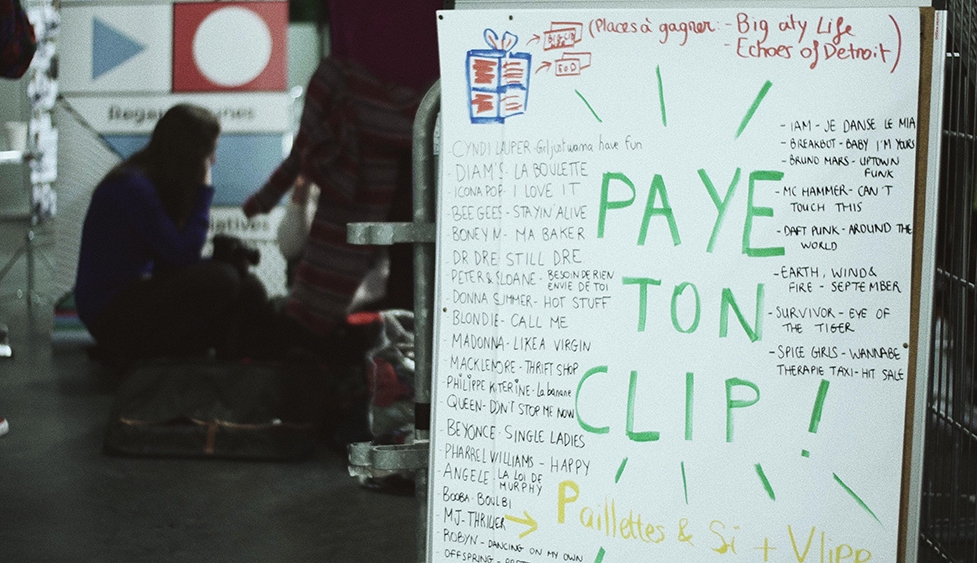 (Places à gagner: - Big city Life
- Echoes of Detroit)
- CYNDI LAUPER - Girl just wanna have fun
- DIAM'S - LA BOULETTE
- ICONA POP - I LOVE IT
- BEE GEES - STAYIN' ALIVE
- BONEY M - MA BAKER
DR DRE STILL DRE
- PETER & SLOANE - BESOIN DE RIEN
ENVIE DE TOI
- DONNA SUMMER - HOT STUFF
- BLONDIE - CALL ME
- MADONNA - LIKE A VIRGIN
- MACKLEMORE - THRIFT SHOP
- PHiliPPE KATERINE - La banane
- QUEEN - DON'T STOP ME NOW
- BEYONCE - SINGLE LADIES
- PHARREL WILLIAMS - HAPPY
- ANGELE - LA LOI DE
MURPHY
- BOOBA - BOULBI
- MJ - THRILLER
- ROBYN - DANCING ON MY OWN
- OFFSPRING -
PAYE
TON
CLIP !
- IAM - JE DANSE LE MIA
- BREAKBOT - BABY I'M YOURS
- BRUNO MARS - UPTOWN
FUNK
- MC HAMMER - CAN'T
TOUCH THIS
- DAFT PUNK - AROUND THE
WORLD
- EARTH, WIND &
FIRE - SEPTEMBER
- SURVIVOR - EYE OF
THE TIGER
- SPICE GIRLS - WANNABE
THERAPIE TAXI - HIT SALE
Paillettes & Si + Vlipp